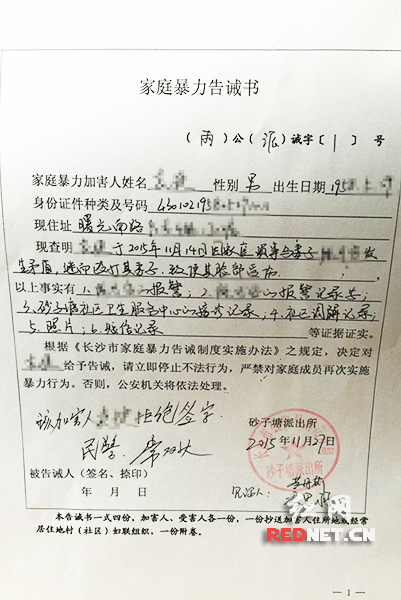 家庭暴力告诫书
(雨)公(派)诫字[1]号
家庭暴力加害人姓名 性别 男 出生日期 1958
身份证件种类及号码 430102195
现住址 曙光南路
现查明 于2015年11月14日因家庭琐事与妻子 发
生矛盾,进而殴打其妻子,致使其脸部
以上事实有1. 报警;2. 的报警记录等;
3.砂子塘社区卫生服务中心的接诊记录;4.社区调解记录;
5.照片;6.短信记录 等证据证实。
根据《长沙市家庭暴力告诫制度实施办法》之规定,决定对
给予告诫,请立即停止不法行为,严禁对家庭成员再次实施
暴力行为。否则,公安机关将依法处理。
该加害人 拒绝签字
砂子塘派出所
民警
2015年11月27日
被告诫人(签名、捺印)
年 月 日
见证人:
本告诫书一式四份,加害人、受害人各一份,一份抄送加害人住所地或经常
居住地村(社区)妇联组织,一份附卷。
红网
REDNET.CN
— 1 —